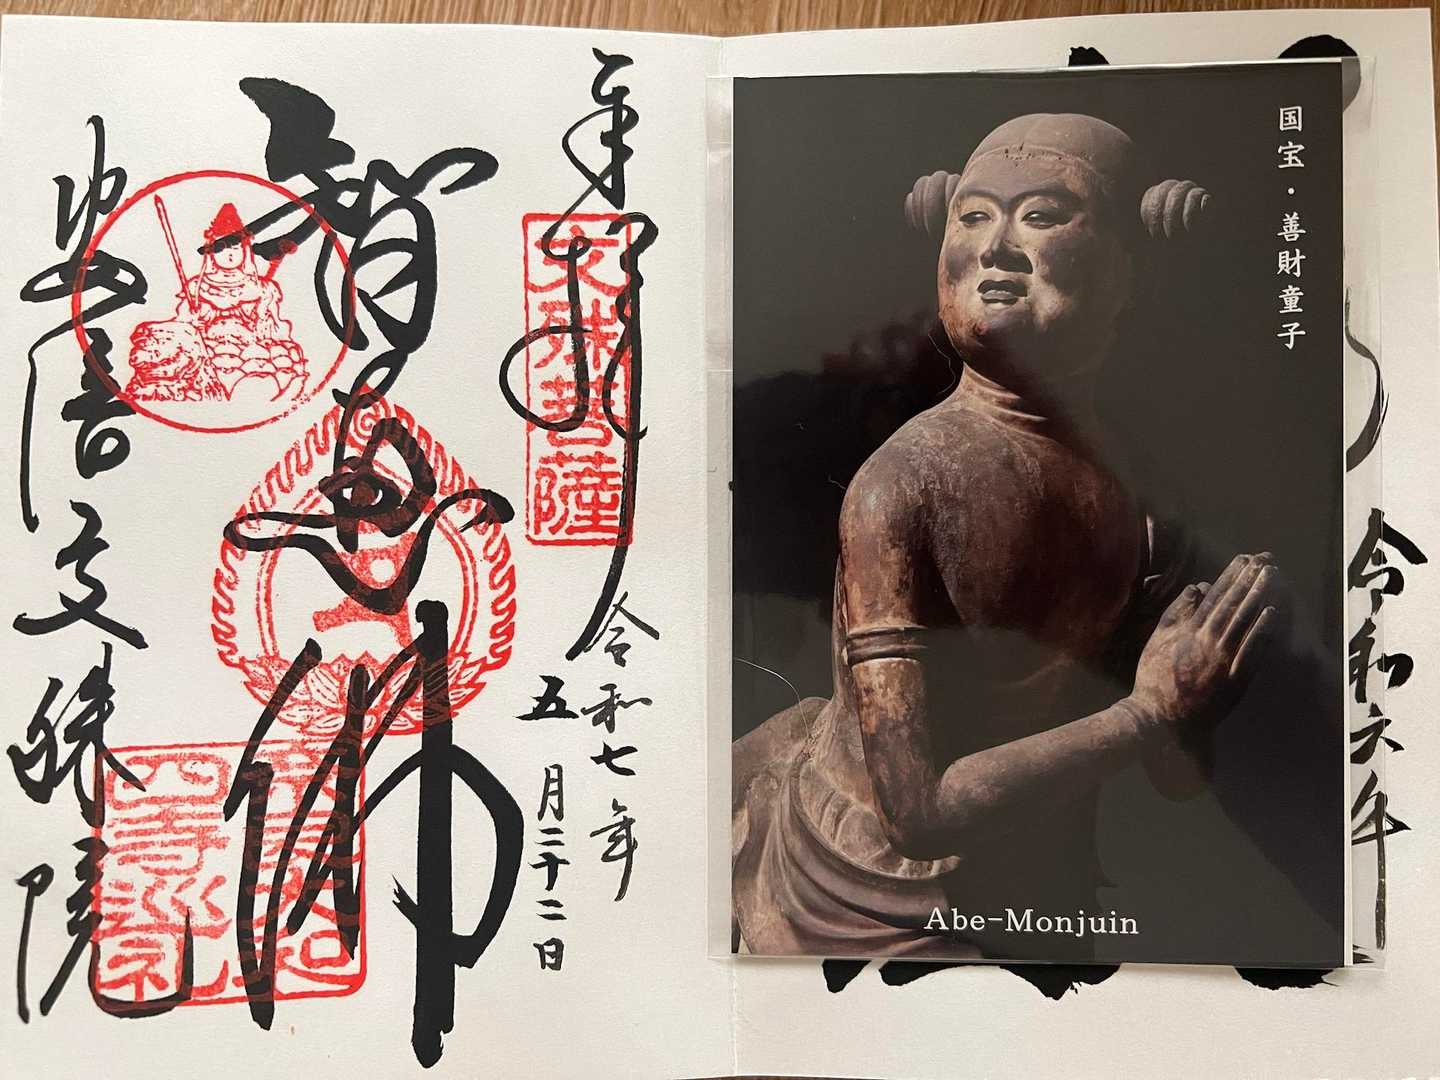 国宝・善財童子
Abe-Monjuin
令和六年
奉拝
文殊菩薩
令和七年
五月二十二日
智恵佛
四寺巡礼
安倍文殊院